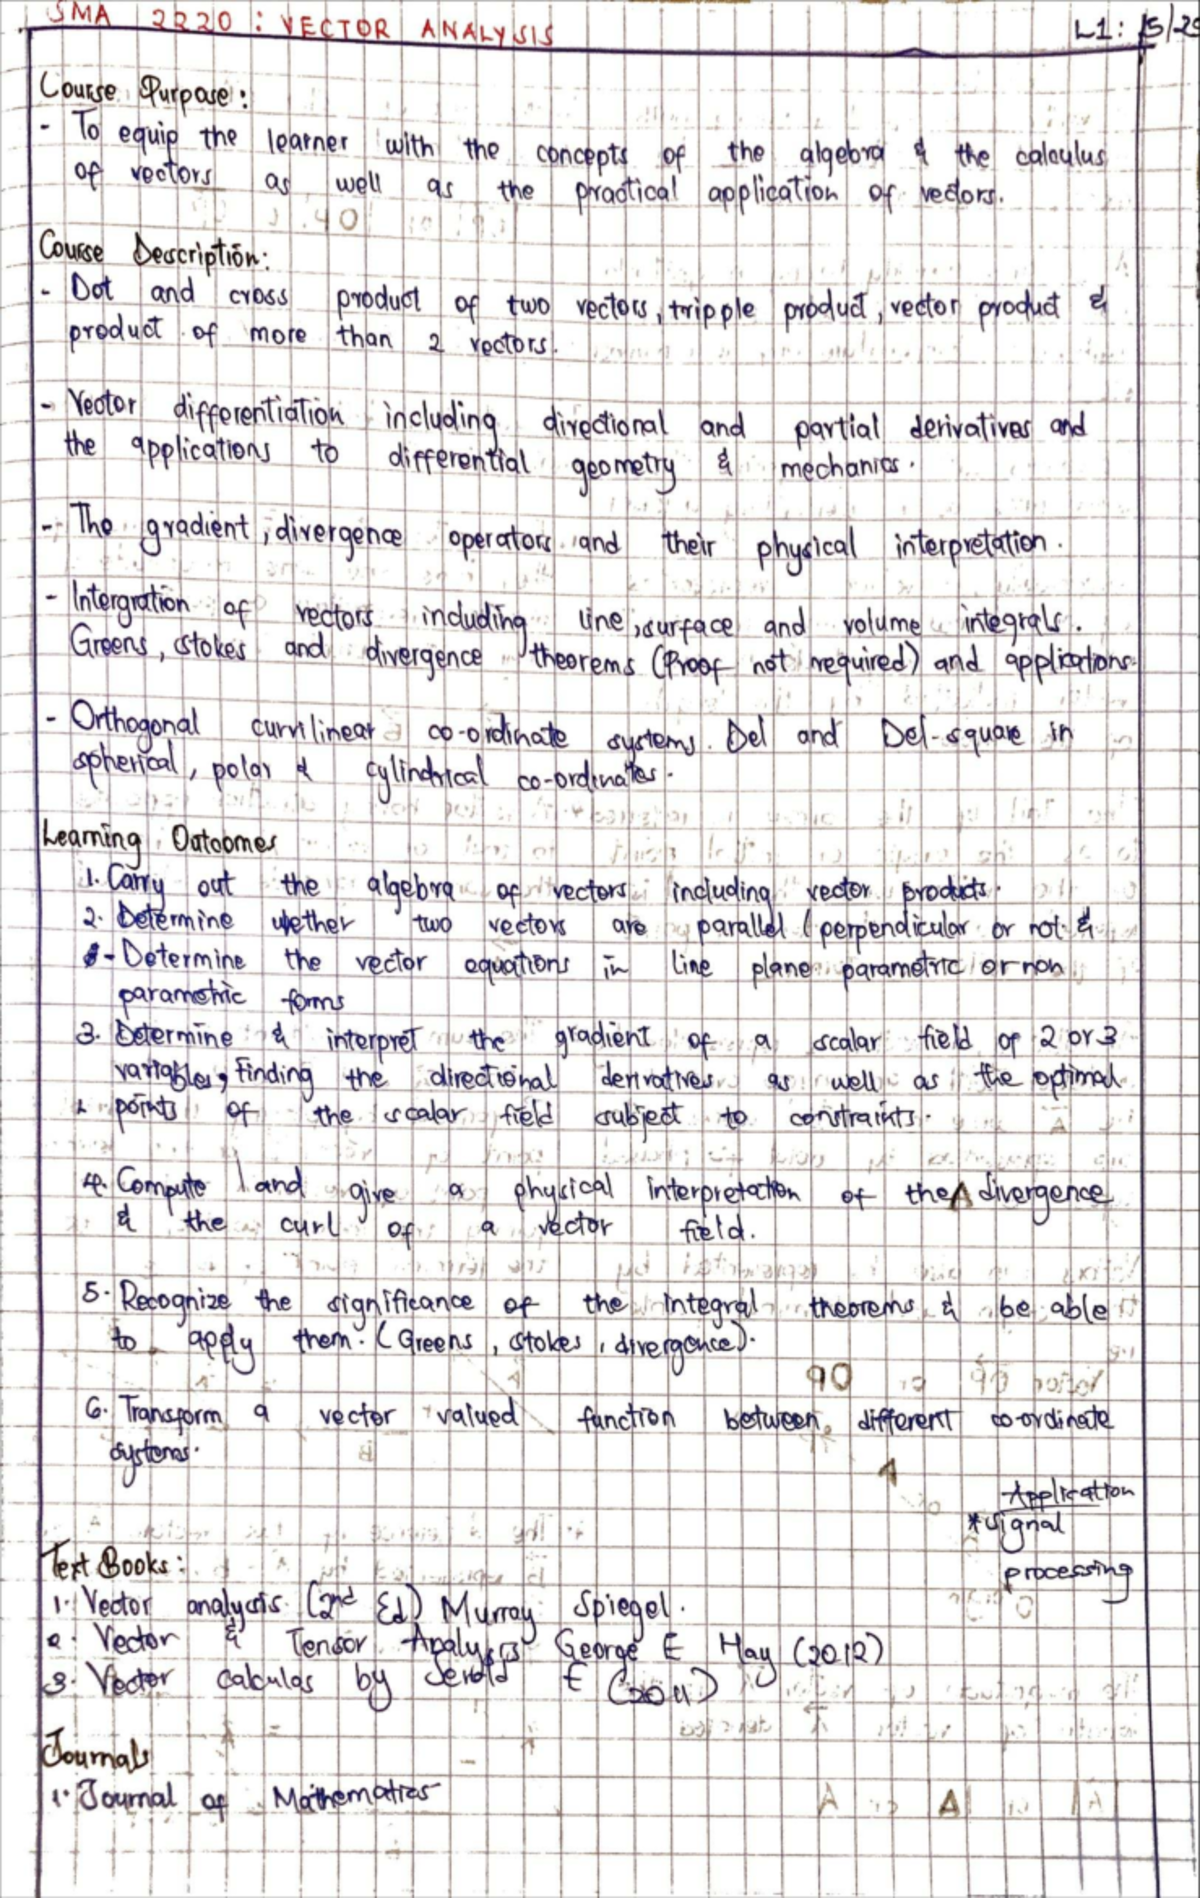 SMA 2220 : VECTOR ANALYSIS
L1: 15/25
Course Purpose :
- To equip the learner with the concepts of the algebra & the calculus
of vectors as well as the practical application of vectors.
Course Description:
- Dot and cross product of two vectors, tripple product, vector product &
product of more than 2 vectors.
- Vector differentiation including directional and partial derivatives and
the applications to differential geometry & mechanics.
- The gradient, divergence operators and their physical interpretation.
- Intergration of vectors including line, surface and volume integrals.
Greens, stokes and divergence theorems (Proof not required) and applications.
- Orthogonal curvilinear co-ordinate systems. Del and Del-square in
spherical, polar & cylindrical co-ordinates.
Learning Outcomes
1. Carry out the algebra of vectors including vector products.
2. Determine whether two vectors are parallel / perpendicular or not &
- Determine the vector equations in line plane parametric or non
parametric forms
3. Determine & interpret the gradient of a scalar field of 2 or 3
variables, finding the directional derivatives as well as the optimal
points of the scalar field subject to constraints.
4. Compute and give a physical interpretation of the divergence
& the curl of a vector field.
5. Recognize the significance of the integral theorems & be able
to apply them. (Greens, stokes, divergence).
6. Transform a vector valued function between different co-ordinate
systems.
Application
* signal
processing
Text Books :
1. Vector analysis (2nd Ed) Murray Spiegel.
2. Vector & Tensor Analysis George E Hay (2012)
3. Vector calculas by Jerold E (2011)
Journals
1. Journal of Mathematics